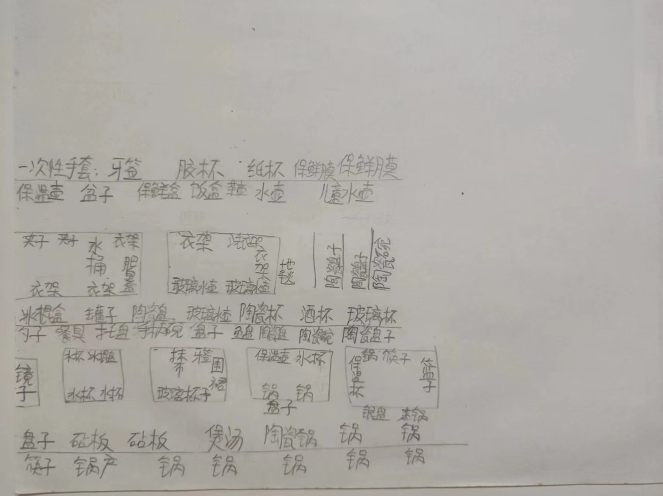 一次性手套: 牙签 胶杯 纸杯 保鲜膜 保鲜膜
保温壶 盆子 保鲜盒 饭盒 水壶 儿童水壶
夹子 夹子 水桶 衣架
衣架 衣架
衣架 衣架
玻璃水壶 玻璃水壶
地毯
陶瓷碗
冰棍盒 罐子 陶瓷盘 玻璃水壶 陶瓷杯 酒杯 玻璃杯
勺子 餐具 托盘 盘子 陶瓷盘 陶瓷碗 陶瓷盘子
镜子
水杯 水杯
抹布 牙签 围裙
玻璃杯子
保温壶 水杯
锅 锅
盘子
锅 筷子 篮子
保温杯
盘子 砧板 砧板 煲汤 陶瓷锅 锅 锅
筷子 锅产 锅 锅 锅 锅 锅